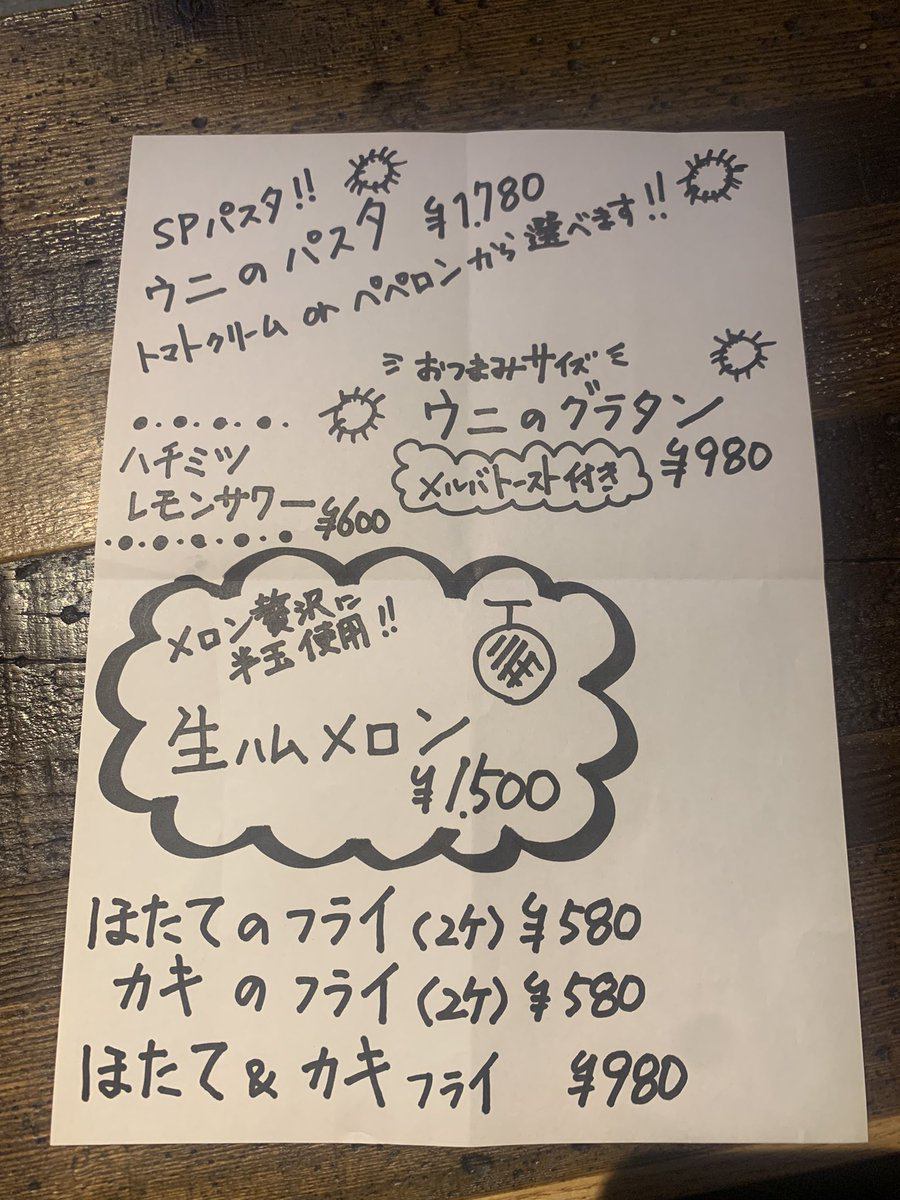 SPパスタ!!
ウニのパスタ ¥1.780
トマトクリーム or ペペロンから選べます!!
おつまみサイズ
ウニのグラタン
メルバトースト付き ¥980
ハチミツ
レモンサワー ¥600
メロン贅沢に
半玉使用!!
生ハムメロン
¥1.500
ほたてのフライ(2ケ) ¥580
カキのフライ(2ケ) ¥580
ほたて&カキフライ ¥980